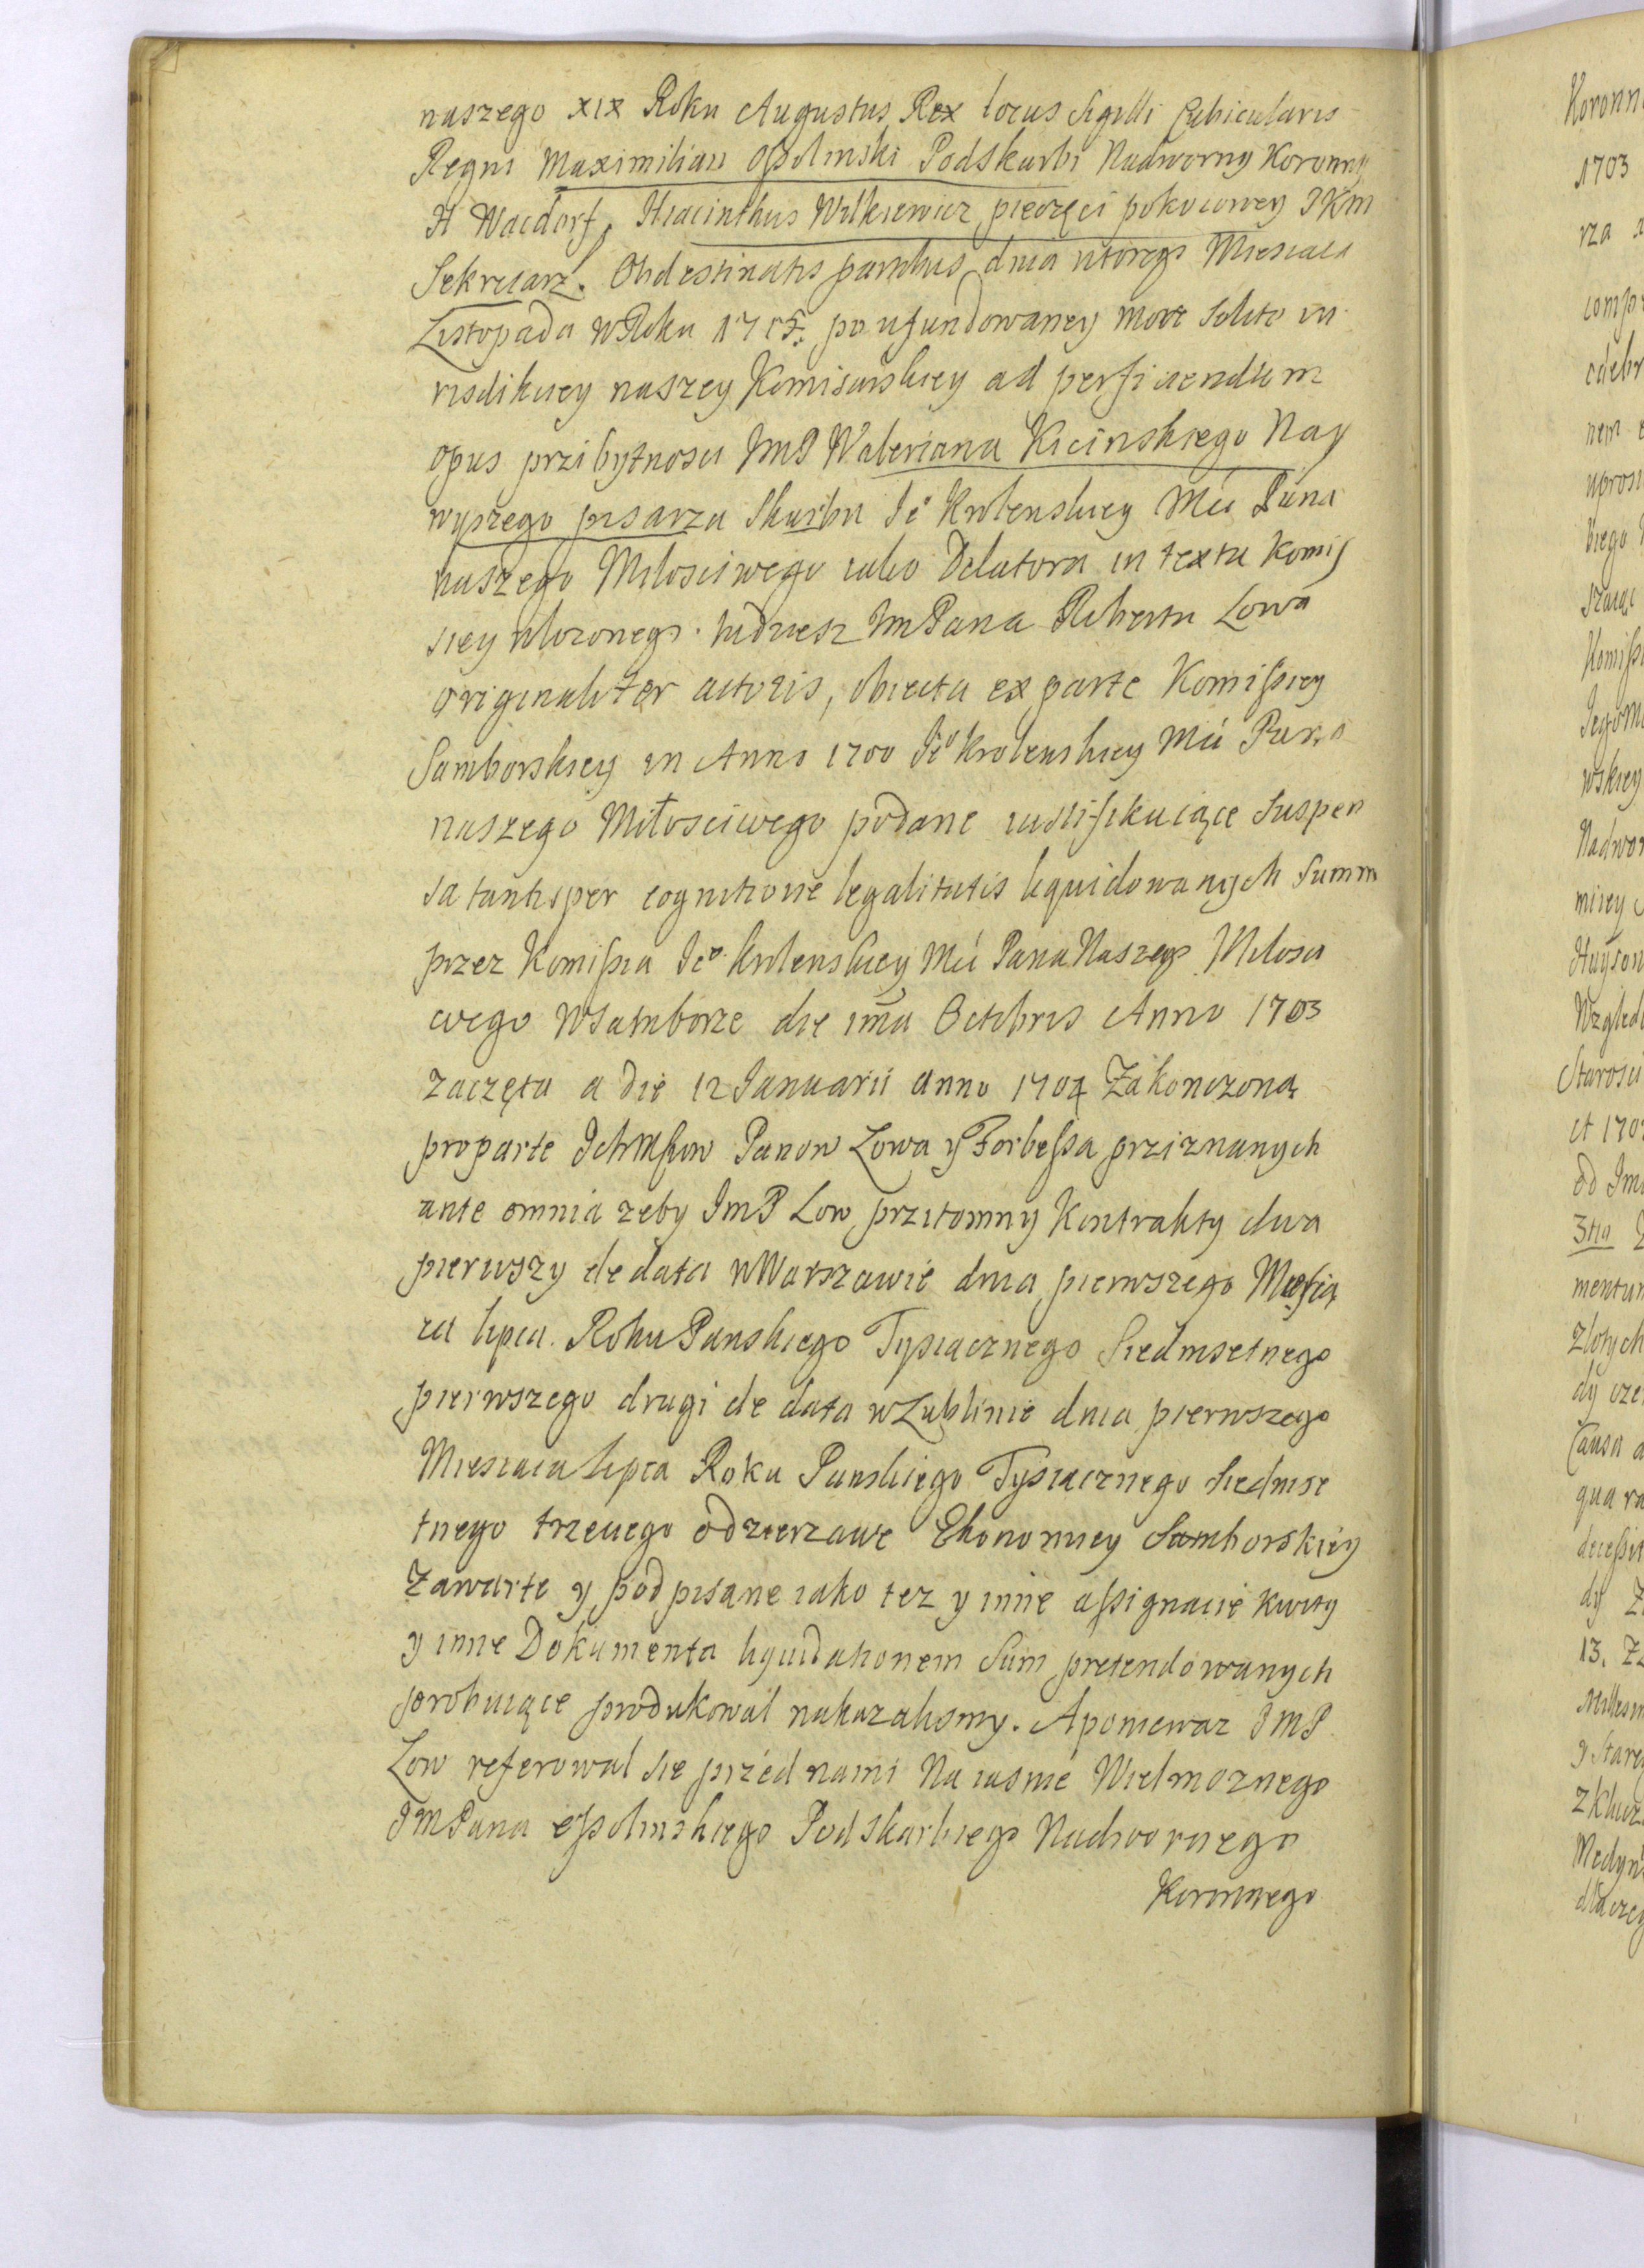 naszego XIX Roku Augustus Rex locus Sigilli Cubicularis
Regni Maximilian Ossolinski Podskarbi Nadworny Koronny
H Wacdorf, Hiacinthus Wilkiewicz pieczęci pokoiowey JKM
Sekretarz. Ohdestinatis partibus dnia wtorego Miesiaca
Listopada w Roku 1715. po ufundowaney more Solito iu
risdikciey naszey Komisarskiey ad perficiendum
opus przibytnosci ImP Waleriana Kicinskiego Nay
wyszego pisarza Skarbu Jeº Krolewskiey Mci Pana
naszego Milosciwego iako Delatora in textu Komis
siey wlozonego. tudziesz ImPana Roberta Lowa
originaliter actoris, obiecta ex parte Komissiey
Samborskiey in Anno 1700 Jeº Krolewskiey Mci Pana
naszego Miłosciwego podane iustifikuiące Suspen
sa tantisper cognitione legalitatis liquidowanych Summ
przez Komissia Jeº Krolewskiey Mci Pana Naszego Milosci
wego w Samborze die ima Octobris Anno 1703
zaczęta a die 12 Januarii anno 1704 Zakonczoną
pro parte Ichmssow Panow Lowa y Forbessa przizwanych
ante omnia zeby ImP Low przitomny Kontrakty dwa
pierwszy de data w Warszawie dnia pierwszego Miesią
ca lipca. Roku Panskiego Tysiącznego Siedmsetnego
pierwszego drugi de data w Lublinie dnia pierwszego
Miesiaca lipca Roku Panskiego Tysiacznego Siedmse
tnego trzeciego odzierzawe Ekonomiey Samborskiey
Zawarte y podpisane iako tez y inne assignacie kwity
y inne Dokumenta liquidationem Sum pretendowanych
probuiące produkowal nakazalismy. Aponiewaz JMP
Low referowal sie przed nami Na iasnie Wielmoznego
JMPana Ossolinskiego Podskarbiego Nadwornego
Koronnego
Koronn
1703
rza
comp
odebr
nem
uprosi
biego
szaiąc
Komiss
Jegom
wskiey
Nadwor
miey
Huyson
Wzgled
Starosci
et 170
od Jm
3tia
mentum
Zlotych
dy cze
Causa
qua ra
decessit
dy Z
13. Z
Millesi
y Stare
z klucz
Medyn
dla czeg